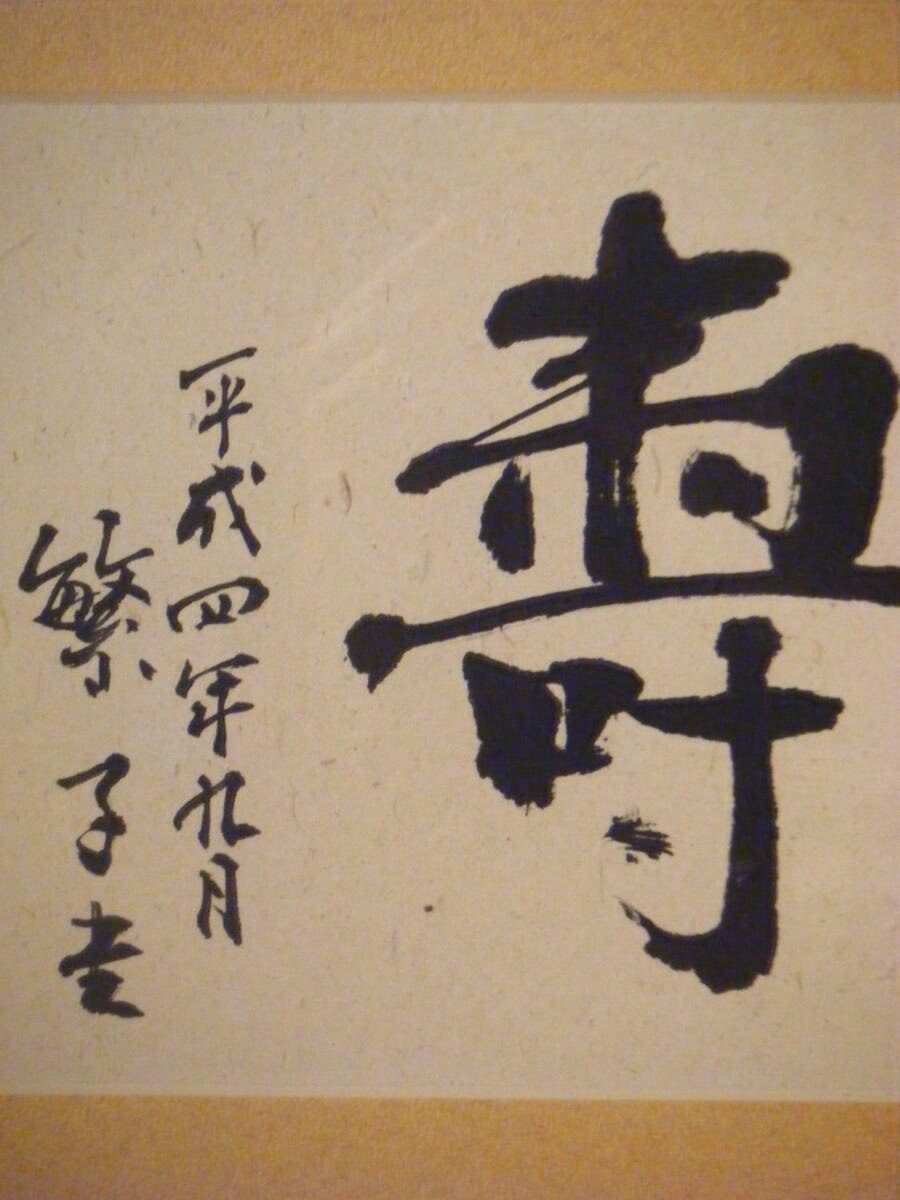 壽
平成四年九月
繁子書